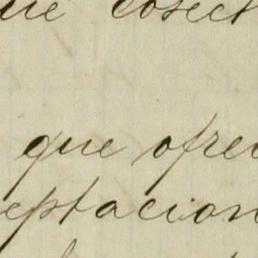 ue cosech
que ofrec
eptacion